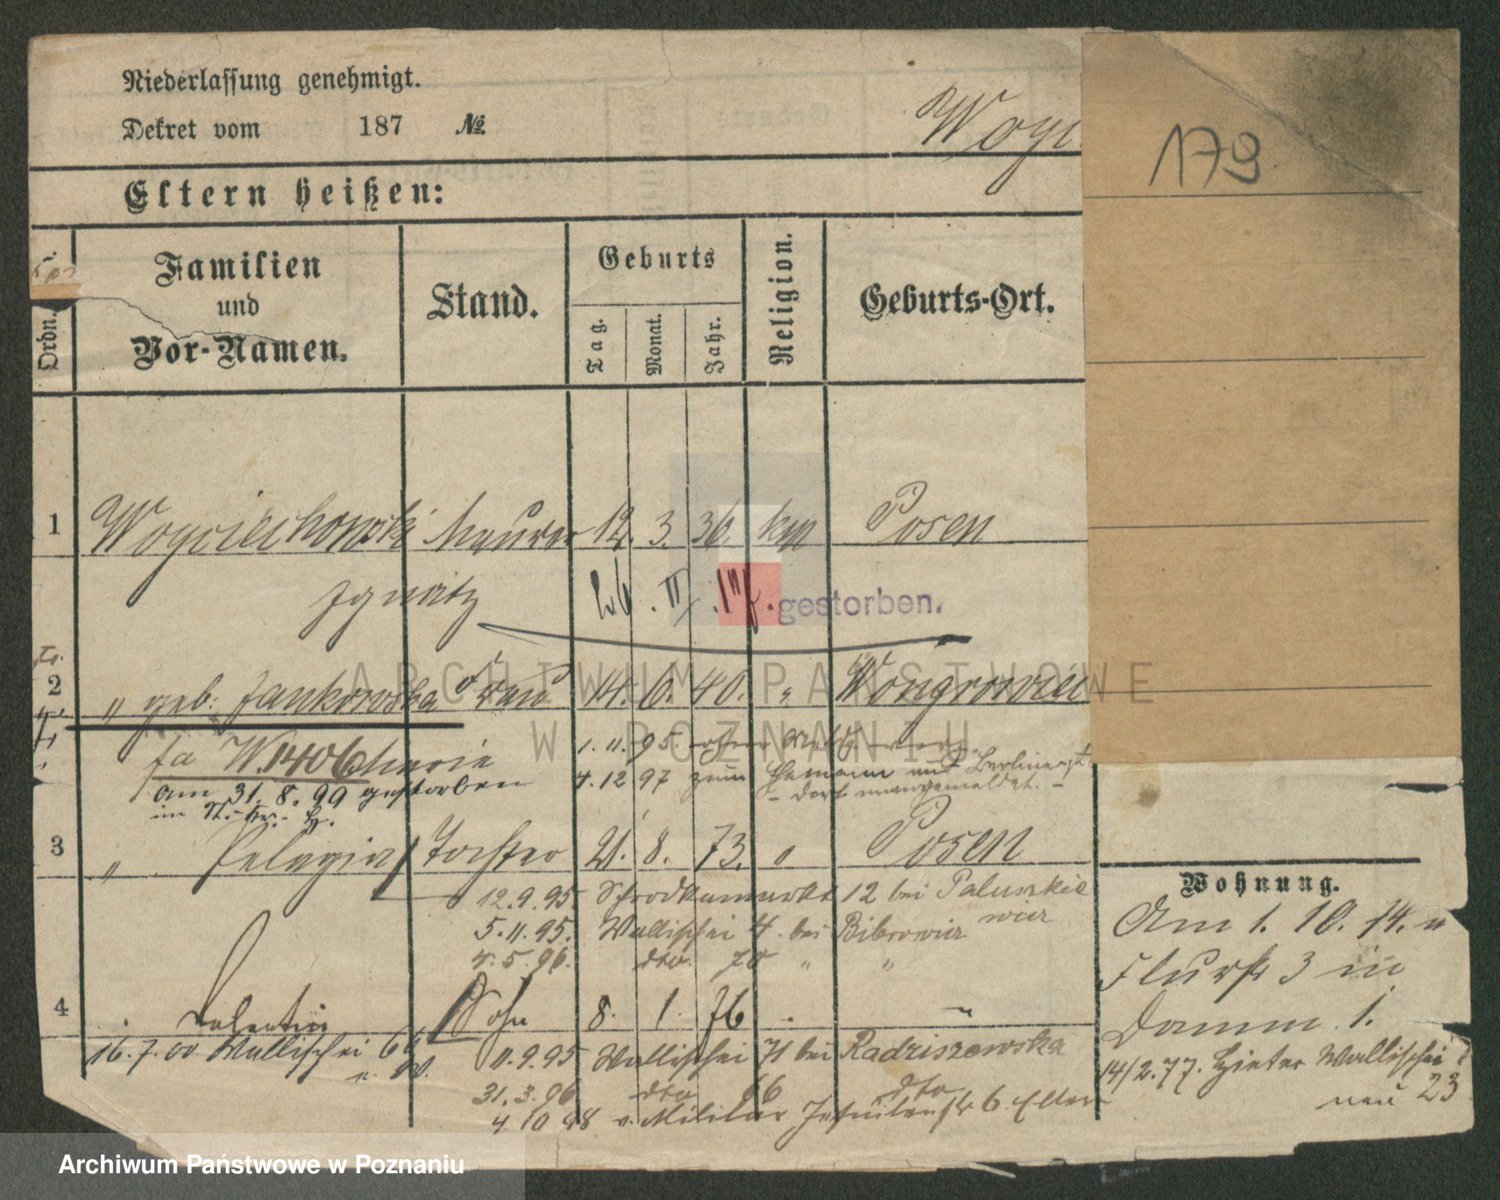 Niederlassung genehmigt.
Dekret vom 187 №
Eltern heißen:
179
Ordn.
Familien und Vor-Namen.
Stand.
Geburts
Tag. Monat. Jahr.
Religion.
Geburts-Ort.
1 Woyciechowski Maurer 12. 3. 36. kath Posen
Ignatz gestorben.
2 " geb: Jankowska Frau 14. 6. 40. " Wongrowiec
1. 11. 95.
am 31. 8. 99 gestorben
4. 12 97 zum Ehemann
3 " Pelagia Tochter 21. 8. 73. " Posen
12. 9. 95 Schrodkamarkt 12 bei Paluszkie
wicz
5. 11. 95. Wallischei 4. bei Bibrowicz
4. 5. 96. dto. 70 " "
4 Valentin Sohn 8. 1. 76 "
16. 7. 00 Wallischei
11. 9. 95 Wallischei 71 bei Radziszewska
31. 3. 96 dto 66 dto
4 10 98 v. Militär Jesuitenstr 6. Eltern
Wohnung.
Am 1. 10. 74. v
Flurstr 3 in
Damm 1.
14/2. 77. Hinter Wallischei
neu 23
ARCHIWUM PAŃSTWOWE
W POZNANIU
Archiwum Państwowe w Poznaniu